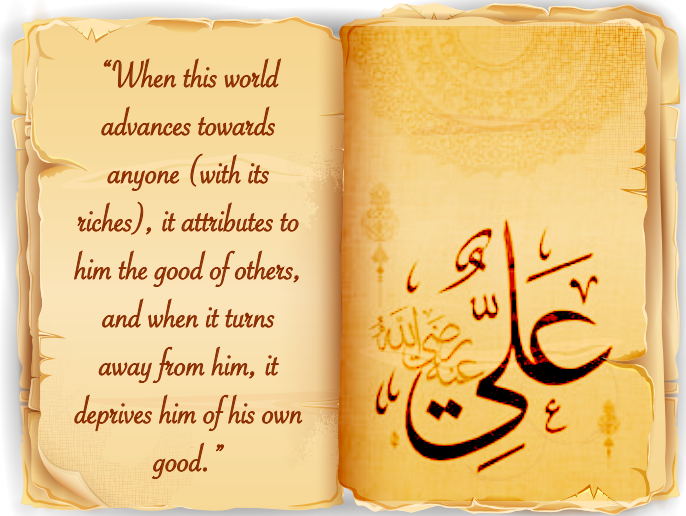 “When this world
advances towards
anyone (with its
riches), it attributes to
him the good of others,
and when it turns
away from him, it
deprives him of his own
good.”
عَلِيٌّ
رضي الله
عنه